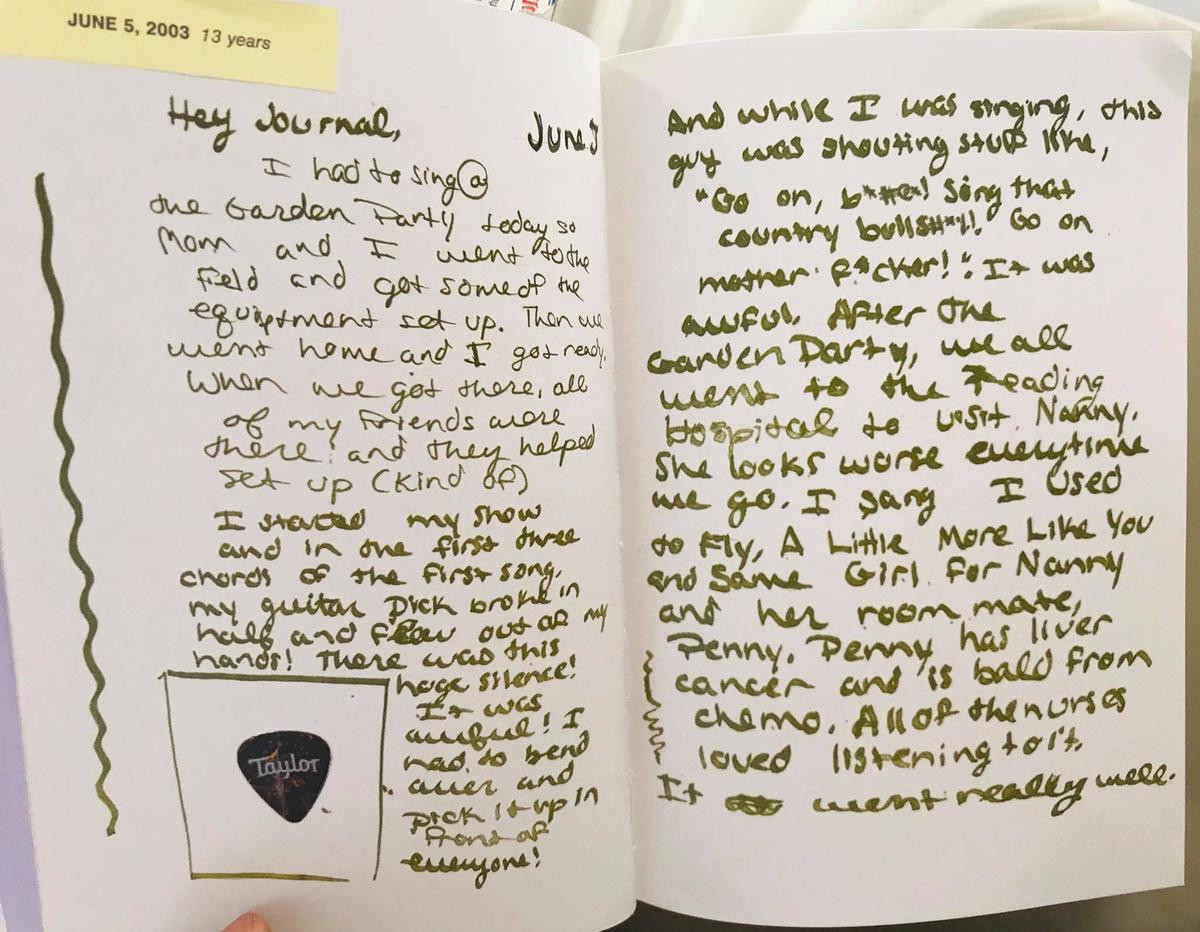 JUNE 5, 2003 13 years
Hey Journal,
June 5
I had to sing @
the Garden Party today so
Mom and I went to the
field and got some of the
equiptment set up. Then we
went home and I got ready.
When we got there, all
of my friends were
there, and they helped
set up (kind of)
I started my show
and in the first three
chords of the first song,
my guitar pick broke in
half and flew out of my
hands! There was this
huge silence!
It was
awful! I
had to bend
over and
pick it up in
front of
everyone!
Taylor
And while I was singing, this
guy was shouting stuff like,
"Go on, b**#@*! Sing that
country bulls#*%! Go on
mother f*cker!". It was
awful. After the
Garden Party, we all
went to the Reading
Hospital to visit Nanny.
She looks worse everytime
we go. I sang I Used
to Fly, A Little More Like You
and Same Girl for Nanny
and her room mate,
Penny. Penny has liver
cancer and is bald from
chemo. All of the nurses
loved listening to it.
It went really well.